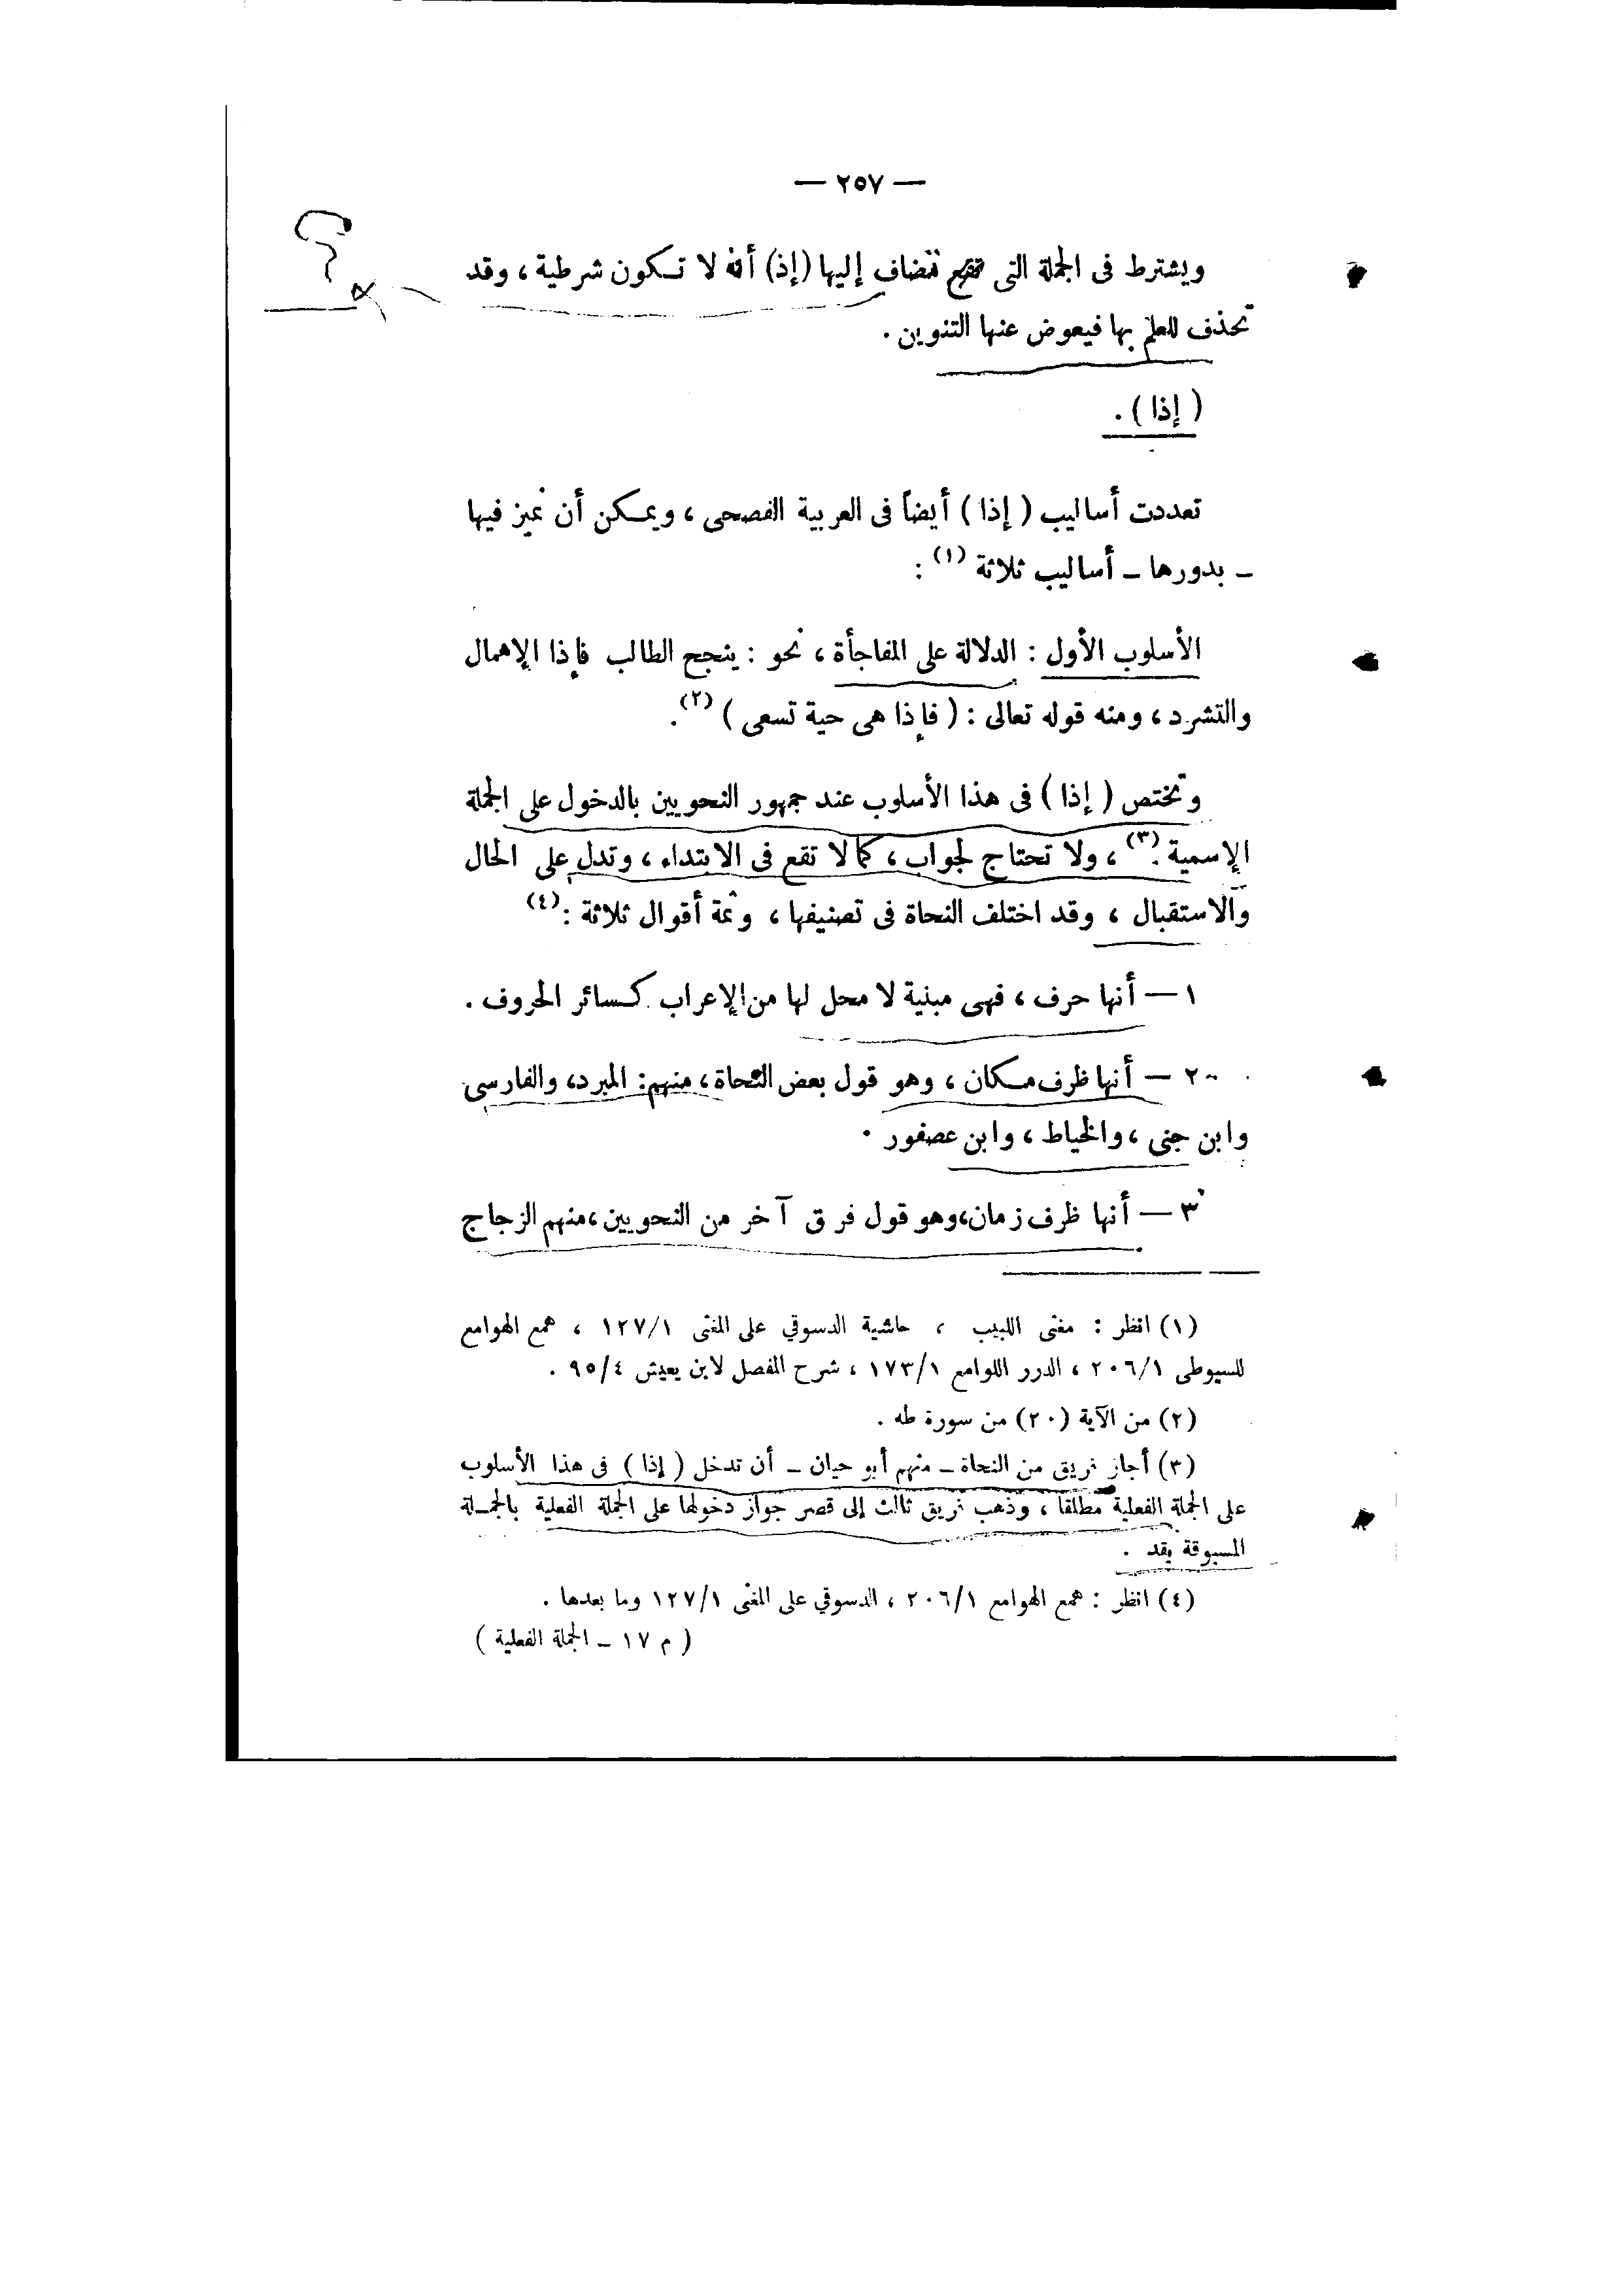 — ٢٥٧ —
ويشترط فى الجملة التى تضاف إليها (إذ) أن لا تكون شرطية ، وقد
تحذف للعلم بها فيعوض عنها التنوين .
( إذا ) .
تعددت أساليب ( إذا ) أيضاً فى العربية الفصحى ، ويمكن أن نميز فيها
ـ بدورها ـ أساليب ثلاثة (١) :
الأسلوب الأول : الدلالة على المفاجأة ، نحو : ينجح الطالب فإذا الإهمال
والتشرد ، ومنه قوله تعالى : ( فإذا هى حية تسعى ) (٢).
وتختص ( إذا ) فى هذا الأسلوب عند جمهور النحويين بالدخول على الجملة
الإسمية (٣) ، ولا تحتاج لجواب ، كما لا تقع فى الابتداء ، وتدل على الحال
والاستقبال ، وقد اختلف النحاة فى تصنيفها ، وثمة أقوال ثلاثة : (٤)
١ — أنها حرف ، فهى مبنية لا محل لها من الإعراب كسائر الحروف .
٢ — أنها ظرف مكان ، وهو قول بعض النحاة ، منهم : المبرد ، والفارسى
وابن جنى ، والخياط ، وابن عصفور .
٣ — أنها ظرف زمان ، وهو قول فرق آخر من النحويين ، منهم الزجاج
(١) انظر : مغنى اللبيب ، حاشية الدسوقي على المغنى ١٢٧/١ ، همع الهوامع
للسيوطى ٢٠٦/١ ، الدرر اللوامع ١٧٣/١ ، شرح المفصل لابن يعيش ٩٥/٤ .
(٢) من الآية (٢٠) من سورة طه .
(٣) أجاز فريق من النحاة ـ منهم أبو حيان ـ أن تدخل ( إذا ) فى هذا الأسلوب
على الجملة الفعلية مطلقا ، وذهب فريق ثالث إلى قصر جواز دخولها على الجملة الفعلية بالجملة
المسبوقة بقد .
(٤) انظر : همع الهوامع ٢٠٦/١ ، الدسوقي على المغنى ١٢٧/١ وما بعدها .
( م ١٧ ـ الجملة الفعلية )